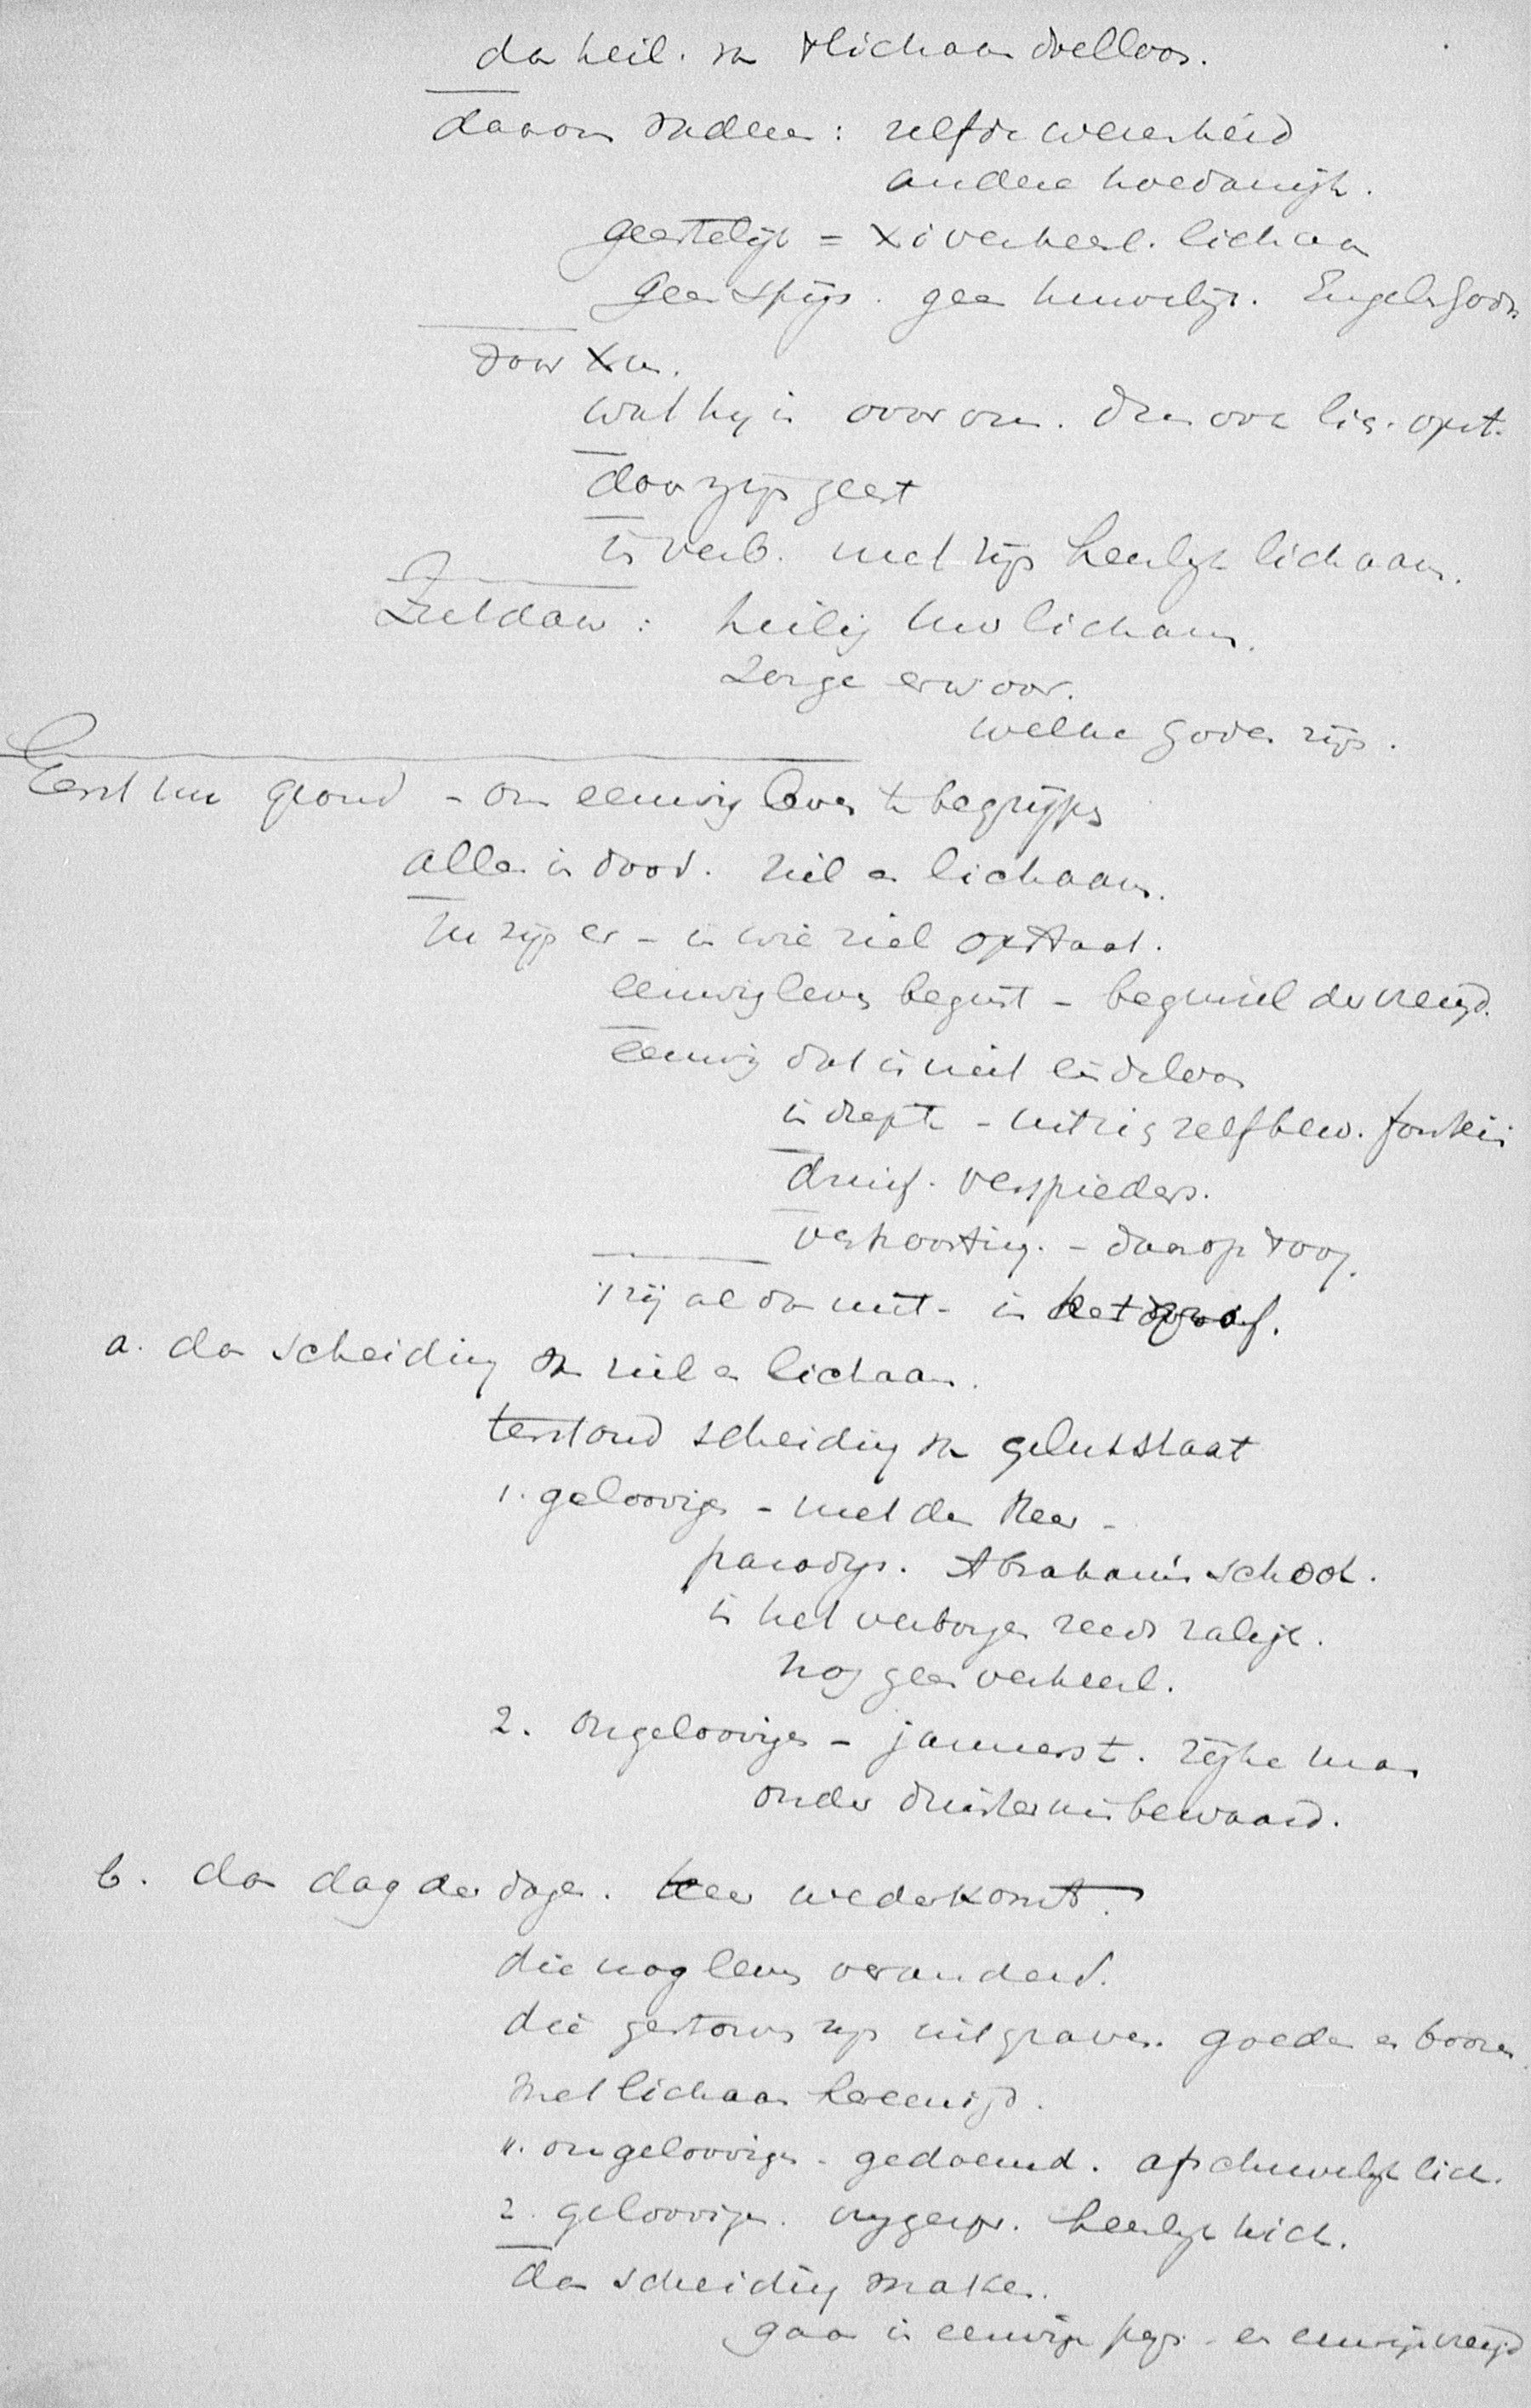 dan heil. van 't lichaam doelloos.
daarom anders: zelfde wezenheid
andere hoedanigh.
geestelijk = X's verheerl. lichaam
Geen spijs. geen huwelijk. Engelen Gods
door Xus.
wat hij is voor ons. dus ook lich. opst.
door zijn geest
in verb. met zijn heerlijk lichaam.
Ziet dan: heilig uw lichaam.
Zorge ervoor.
welke Godes zijn.
Eerst nu grond - om eeuwig leven te begrijpen
allen in dood. ziel en lichaam.
nu zijn er - in wie ziel opstaat.
eeuwig leven begint - beginsel der vreugd.
eeuwig dat is niet eindeloos
in diepte - uit zich zelf bew. fontein
druif. verspieders.
verpoozing. - daarop
zij al dan niet - in het graf.
a. dan scheiding van ziel en lichaam.
terstond scheiding van geluksstaat
1. geloovigen - met den Heer -
paradijs. Abraham's schoot.
in het verborgen reeds zaligh.
nog geen verheerl.
2. ongeloovigen - jammerst. rijke man
onder duisternis bewaard.
b. dan dag der dagen. Heer wederkomt.
die nog leven veranderd.
die gestorven zijn uit graven. goeden en boozen
met lichaam hereenigd.
1. ongeloovigen - gedoemd. afschuwelijk lich.
2. geloovigen. vrijgespr. heerlijk lich.
dan scheiding maken.
gaan in eeuwige pijn - en eeuwige vreugd